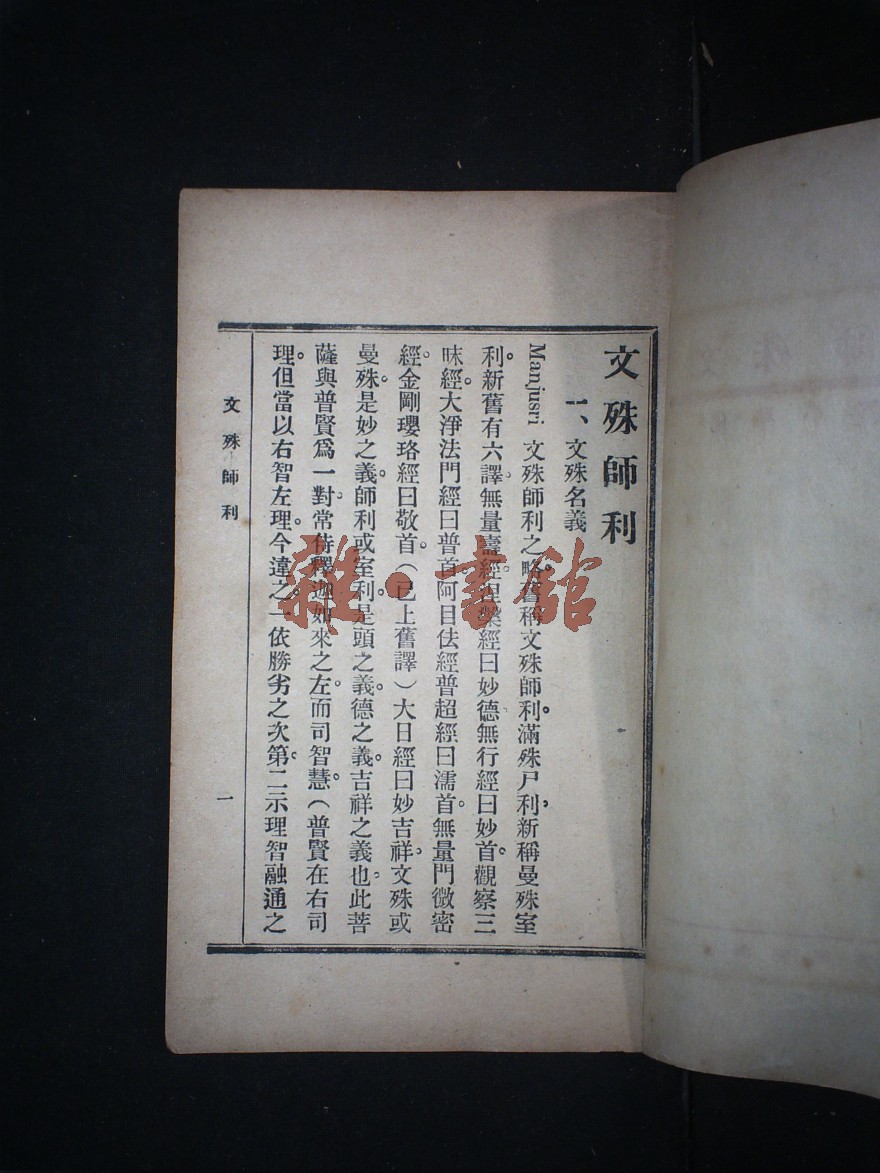 文殊師利
一、文殊名義
Manjusri 文殊師利之略。舊稱文殊師利。滿殊尸利新稱曼殊室
利。新舊有六譯無量壽經涅槃經曰妙德無行經曰妙首。觀察三
昧經大淨法門經曰普首。阿目佉經普超經曰濡首。無量門微密
經。金剛瓔珞經曰敬首。(已上舊譯)大日經曰妙吉祥。文殊或
曼殊。是妙之義。師利或室利。是頭之義。德之義。吉祥之義也。此菩
薩與普賢爲一對。常侍釋迦如來之左。而司智慧。(普賢在右司
理。但當以右智左理。今違之。一依勝劣之次第。二示理智融通之
文殊師利
一
雜·書館